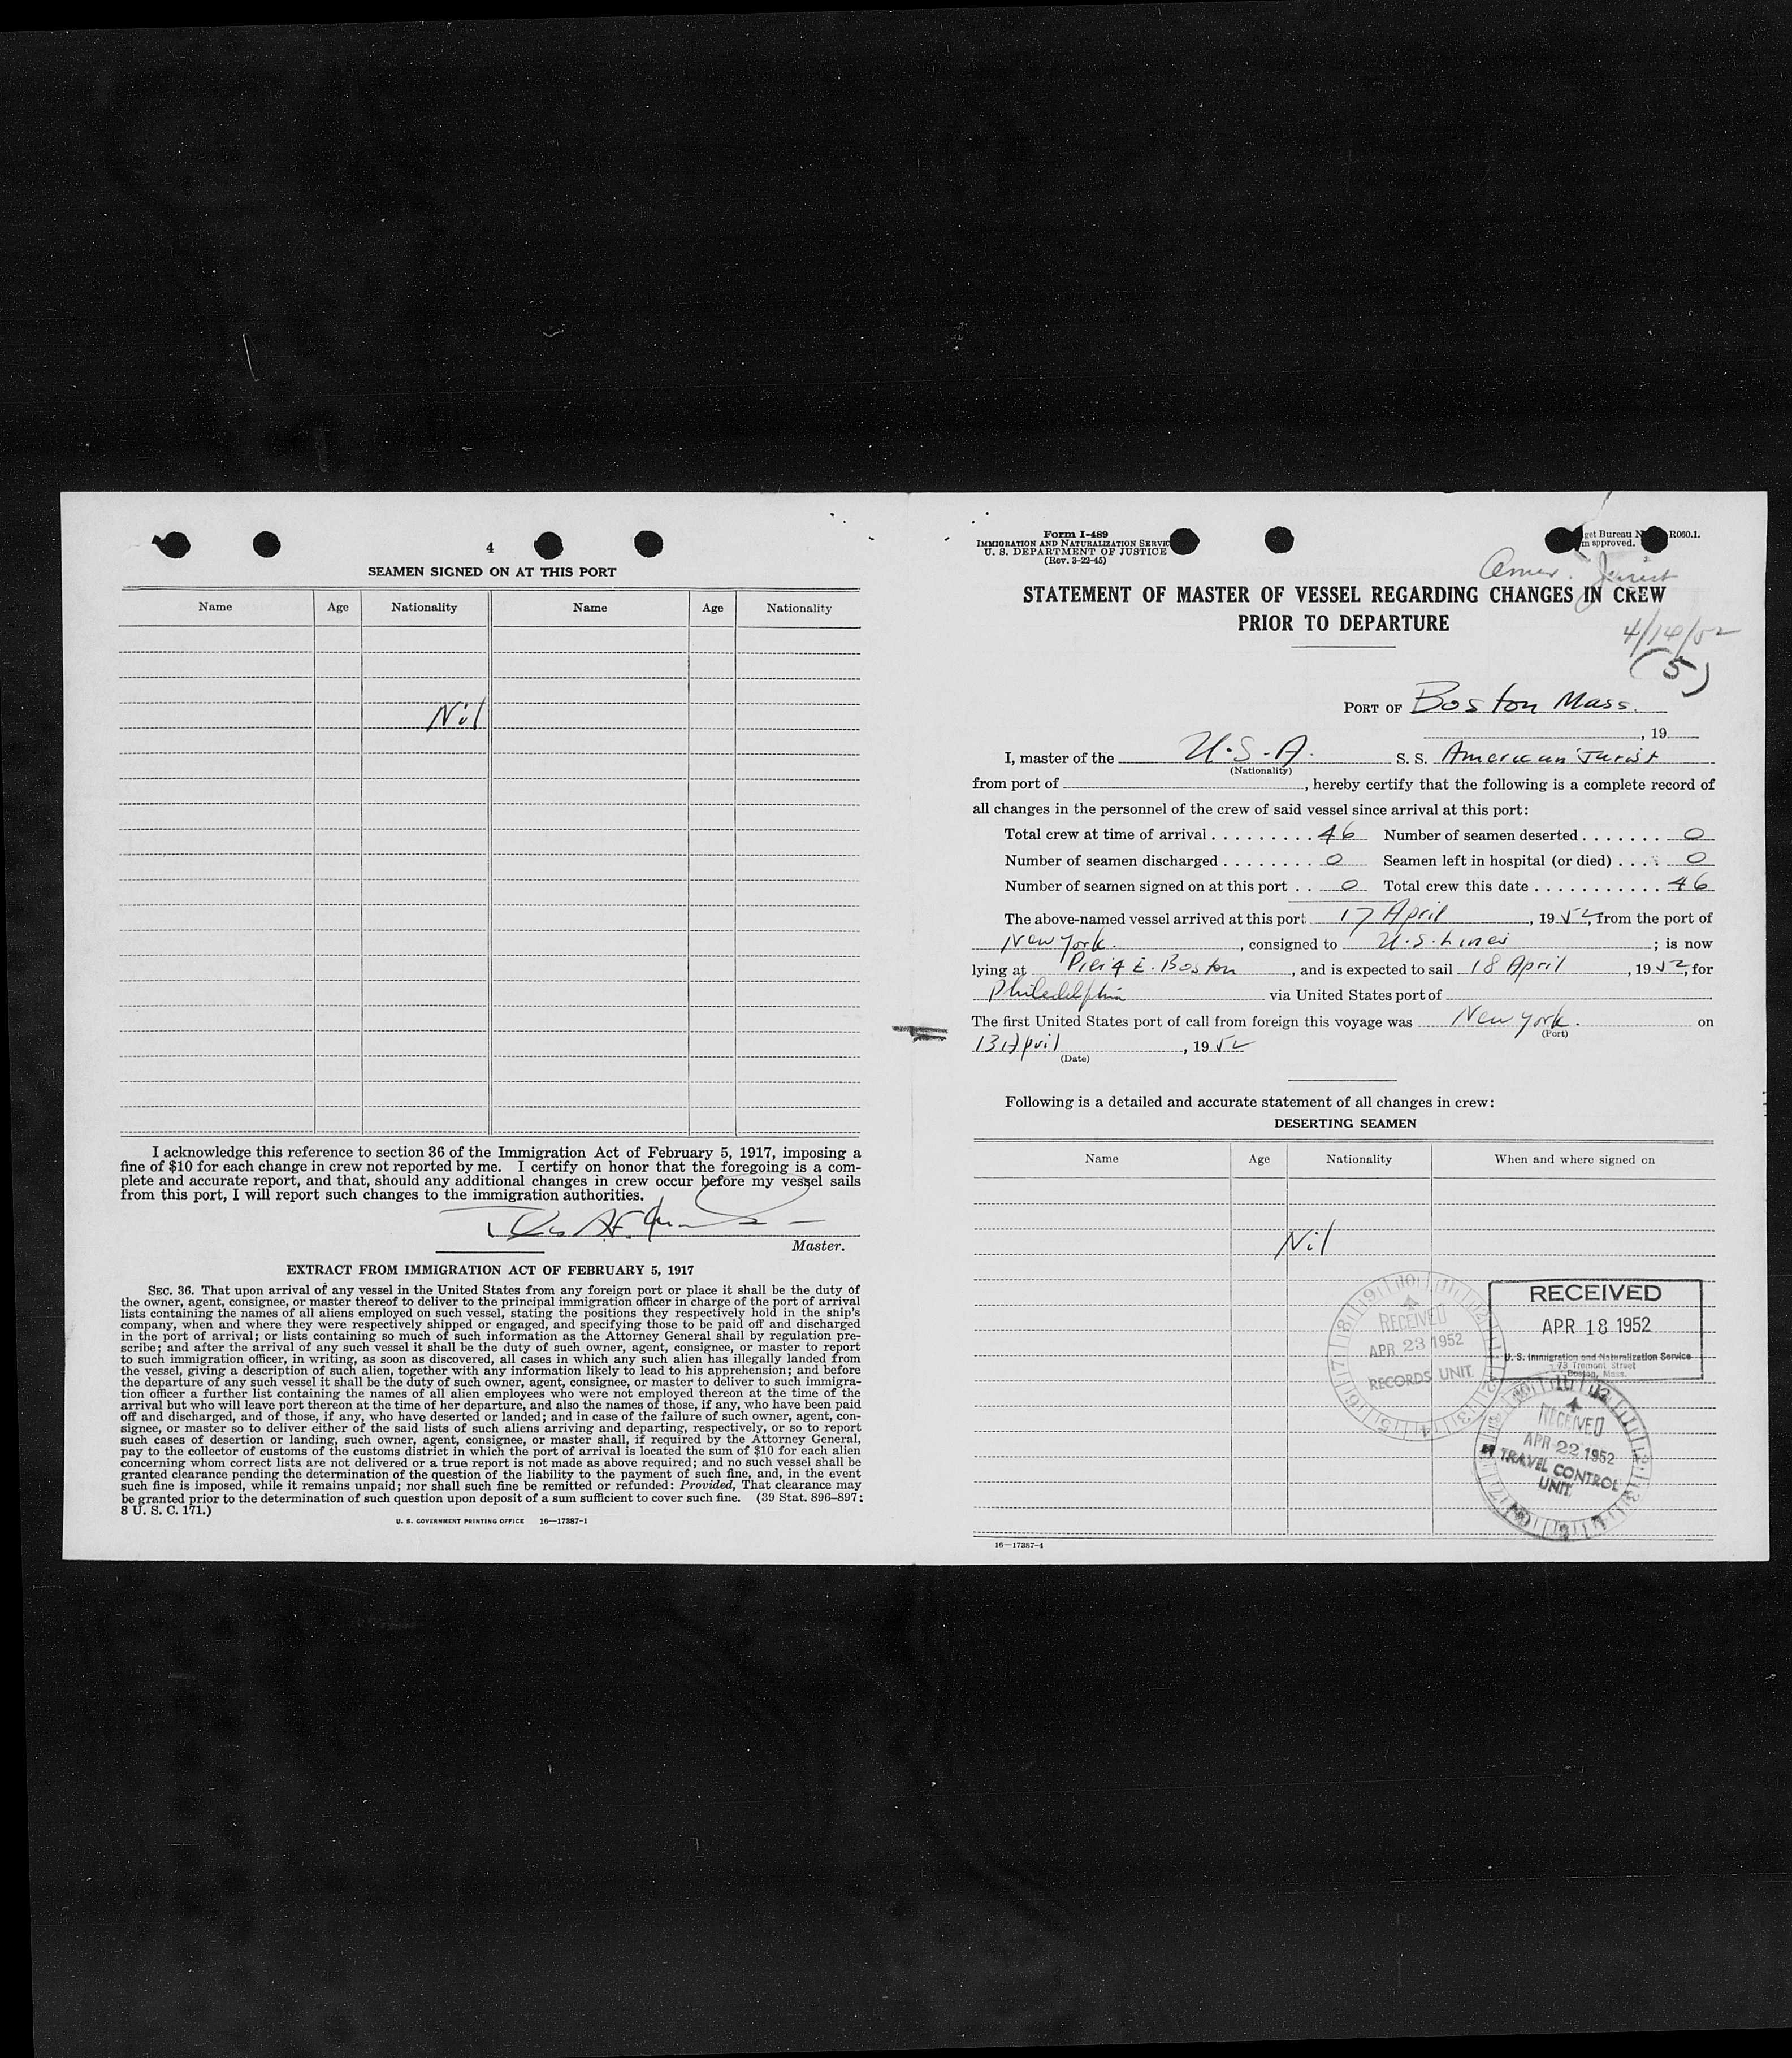 4
SEAMEN SIGNED ON AT THIS PORT
Name Age Nationality Name Age Nationality
Nil
I acknowledge this reference to section 36 of the Immigration Act of February 5, 1917, imposing a
fine of $10 for each change in crew not reported by me. I certify on honor that the foregoing is a com-
plete and accurate report, and that, should any additional changes in crew occur before my vessel sails
from this port, I will report such changes to the immigration authorities.
Master.
EXTRACT FROM IMMIGRATION ACT OF FEBRUARY 5, 1917
SEC. 36. That upon arrival of any vessel in the United States from any foreign port or place it shall be the duty of
the owner, agent, consignee, or master thereof to deliver to the principal immigration officer in charge of the port of arrival
lists containing the names of all aliens employed on such vessel, stating the positions they respectively hold in the ship's
company, when and where they were respectively shipped or engaged, and specifying those to be paid off and discharged
in the port of arrival; or lists containing so much of such information as the Attorney General shall by regulation pre-
scribe; and after the arrival of any such vessel it shall be the duty of such owner, agent, consignee, or master to report
to such immigration officer, in writing, as soon as discovered, all cases in which any such alien has illegally landed from
the vessel, giving a description of such alien, together with any information likely to lead to his apprehension; and before
the departure of any such vessel it shall be the duty of such owner, agent, consignee, or master to deliver to such immigra-
tion officer a further list containing the names of all alien employees who were not employed thereon at the time of the
arrival but who will leave port thereon at the time of her departure, and also the names of those, if any, who have been paid
off and discharged, and of those, if any, who have deserted or landed; and in case of the failure of such owner, agent, con-
signee, or master so to deliver either of the said lists of such aliens arriving and departing, respectively, or so to report
such cases of desertion or landing, such owner, agent, consignee, or master shall, if required by the Attorney General,
pay to the collector of customs of the customs district in which the port of arrival is located the sum of $10 for each alien
concerning whom correct lists are not delivered or a true report is not made as above required; and no such vessel shall be
granted clearance pending the determination of the question of the liability to the payment of such fine, and, in the event
such fine is imposed, while it remains unpaid; nor shall such fine be remitted or refunded: Provided, That clearance may
be granted prior to the determination of such question upon deposit of a sum sufficient to cover such fine. (39 Stat. 896–897;
8 U. S. C. 171.)
U. S. GOVERNMENT PRINTING OFFICE 16—17387-1
Form I-489
IMMIGRATION AND NATURALIZATION SERVIC
U. S. DEPARTMENT OF JUSTICE
(Rev. 3-22-45)
get Bureau N R060.1.
m approved.
Amer. Jurist
STATEMENT OF MASTER OF VESSEL REGARDING CHANGES IN CREW
PRIOR TO DEPARTURE
4/14/52
(5)
PORT OF Boston Mass.
, 19
I, master of the U.S.A. S. S. American Jurist
(Nationality)
from port of , hereby certify that the following is a complete record of
all changes in the personnel of the crew of said vessel since arrival at this port:
Total crew at time of arrival . . . . . . . . . 46 Number of seamen deserted . . . . . . . 0
Number of seamen discharged . . . . . . . . 0 Seamen left in hospital (or died) . . . . 0
Number of seamen signed on at this port . . 0 Total crew this date . . . . . . . . . . . 46
The above-named vessel arrived at this port 17 April , 1952, from the port of
New York. , consigned to U.S. Lines ; is now
lying at Pier 4 E. Boston , and is expected to sail 18 April , 1952, for
Philedelphia via United States port of
The first United States port of call from foreign this voyage was New York. on
(Port)
13 April , 1952
(Date)
Following is a detailed and accurate statement of all changes in crew:
DESERTING SEAMEN
Name Age Nationality When and where signed on
Nil
RECEIVED
APR 18 1952
U. S. Immigration and Naturalization Service
73 Tremont Street
Boston, Mass.
RECEIVED
APR 23 1952
RECORDS UNIT
RECEIVED
APR 22 1952
TRAVEL CONTROL
UNIT
16—17387-4